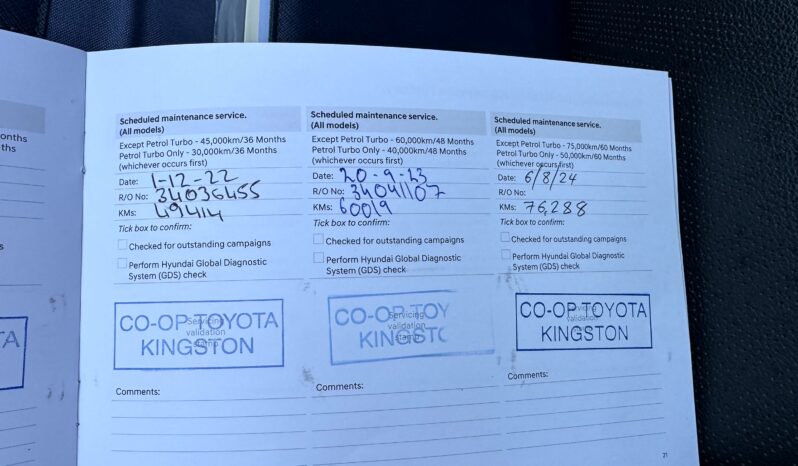 onths
ths
s
A
Scheduled maintenance service.
(All models)
Except Petrol Turbo - 45,000km/36 Months
Petrol Turbo Only - 30,000km/36 Months
(whichever occurs first)
Date: 1-12-22
R/O No: 34036455
KMs: 49414
Tick box to confirm:
Checked for outstanding campaigns
Perform Hyundai Global Diagnostic
System (GDS) check
CO-OP TOYOTA
KINGSTON
Servicing
validation
stamp
Comments:
Scheduled maintenance service.
(All models)
Except Petrol Turbo - 60,000km/48 Months
Petrol Turbo Only - 40,000km/48 Months
(whichever occurs first)
Date: 20-9-23
R/O No: 34041107
KMs: 60019
Tick box to confirm:
Checked for outstanding campaigns
Perform Hyundai Global Diagnostic
System (GDS) check
CO-OP TOY
KINGST
Servicing
validation
stamp
Comments:
Scheduled maintenance service.
(All models)
Except Petrol Turbo - 75,000km/60 Months
Petrol Turbo Only - 50,000km/60 Months
(whichever occurs first)
Date: 6/8/24
R/O No:
KMs: 76,288
Tick box to confirm:
Checked for outstanding campaigns
Perform Hyundai Global Diagnostic
System (GDS) check
CO-OP TOYOTA
KINGSTON
Servicing
validation
Comments:
71